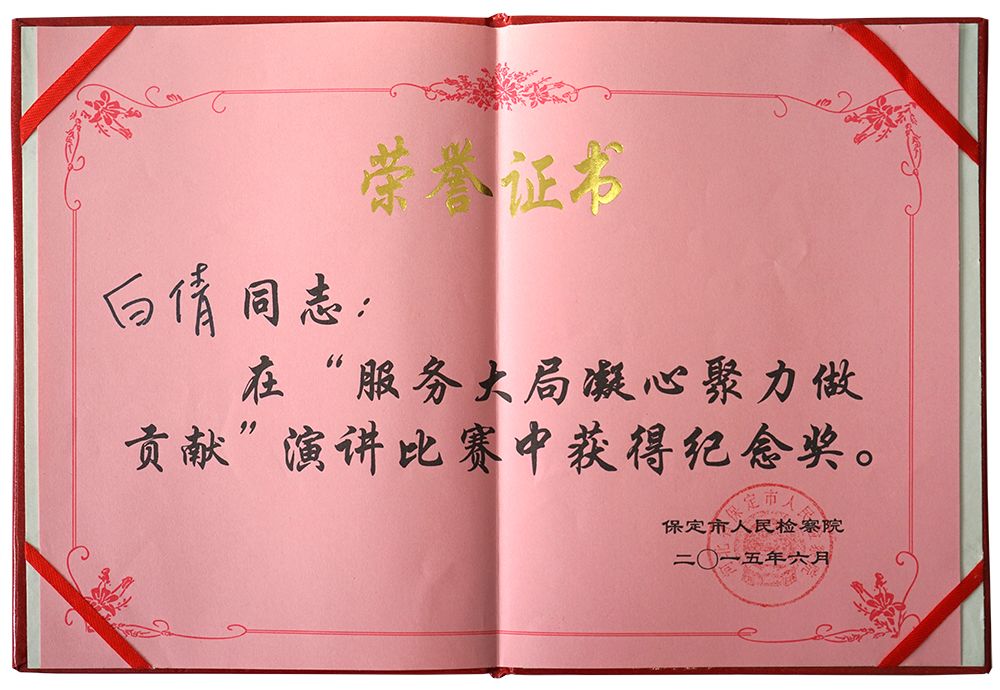 荣誉证书
白倩同志：
在“服务大局凝心聚力做
贡献”演讲比赛中获得纪念奖。
保定市人民检察院
二〇一五年六月